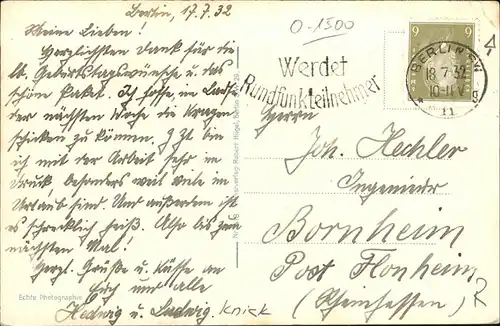 Berlin, 17.7.32
Meine Lieben!
Herzlichsten Dank für die
lb. Geburtstagswünsche u. das
schöne Paket. Ich hoffe im Laufe
der nächsten Woche die Kragen
schicken zu können. Izt bin
ich mit der Arbeit sehr im
Druck, besonders weil viele im
Urlaub sind. Und außerdem ist
es schrecklich heiß. Also bis zum
nächsten Mal!
Herzl. Grüße u. Küsse an
Euch und alle
Hedwig u. Ludwig
Knick
Echte Photographie
0-1500
Werdet
Rundfunkteilnehmer
9 9
BERLIN SW
18.7.32
10-11 V
11
Herrn
Joh. Hechler
Ingenieur
Bornheim
Post Flonheim
(Rheinhessen)